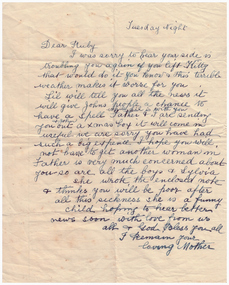 Tuesday Night
Dear Ruby
I was sorry to hear your side is
troubling you again if you left Kitty
that would do it you know this terrible
weather makes it worse for you
Lil will tell you all the news it
will give Johns people a chance to
have a spell Father & I are sending
you out a Xmas box it will come in
useful we are sorry you have had
such a big expense I hope you will
not have to get another woman in
Father is very much concerned about
you so are all the boys & Sylvia
she wrote the enclosed note
& thinks you will be poor after
all this sickness she is a funny
child hoping to hear better
news soon with love from us
all & God Bless you all
I remain your
loving Mother